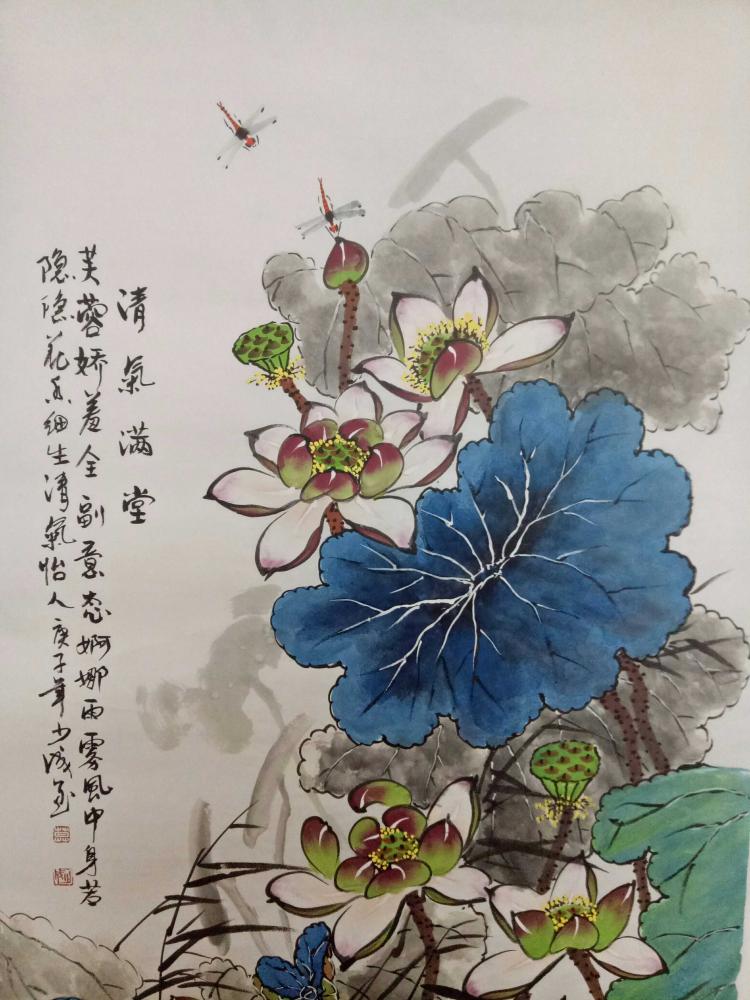 清氣满堂
芙蓉娇羞全副意态婀娜雨雾风中身若
隐隐花香细生清氣怡人庚子年少成画